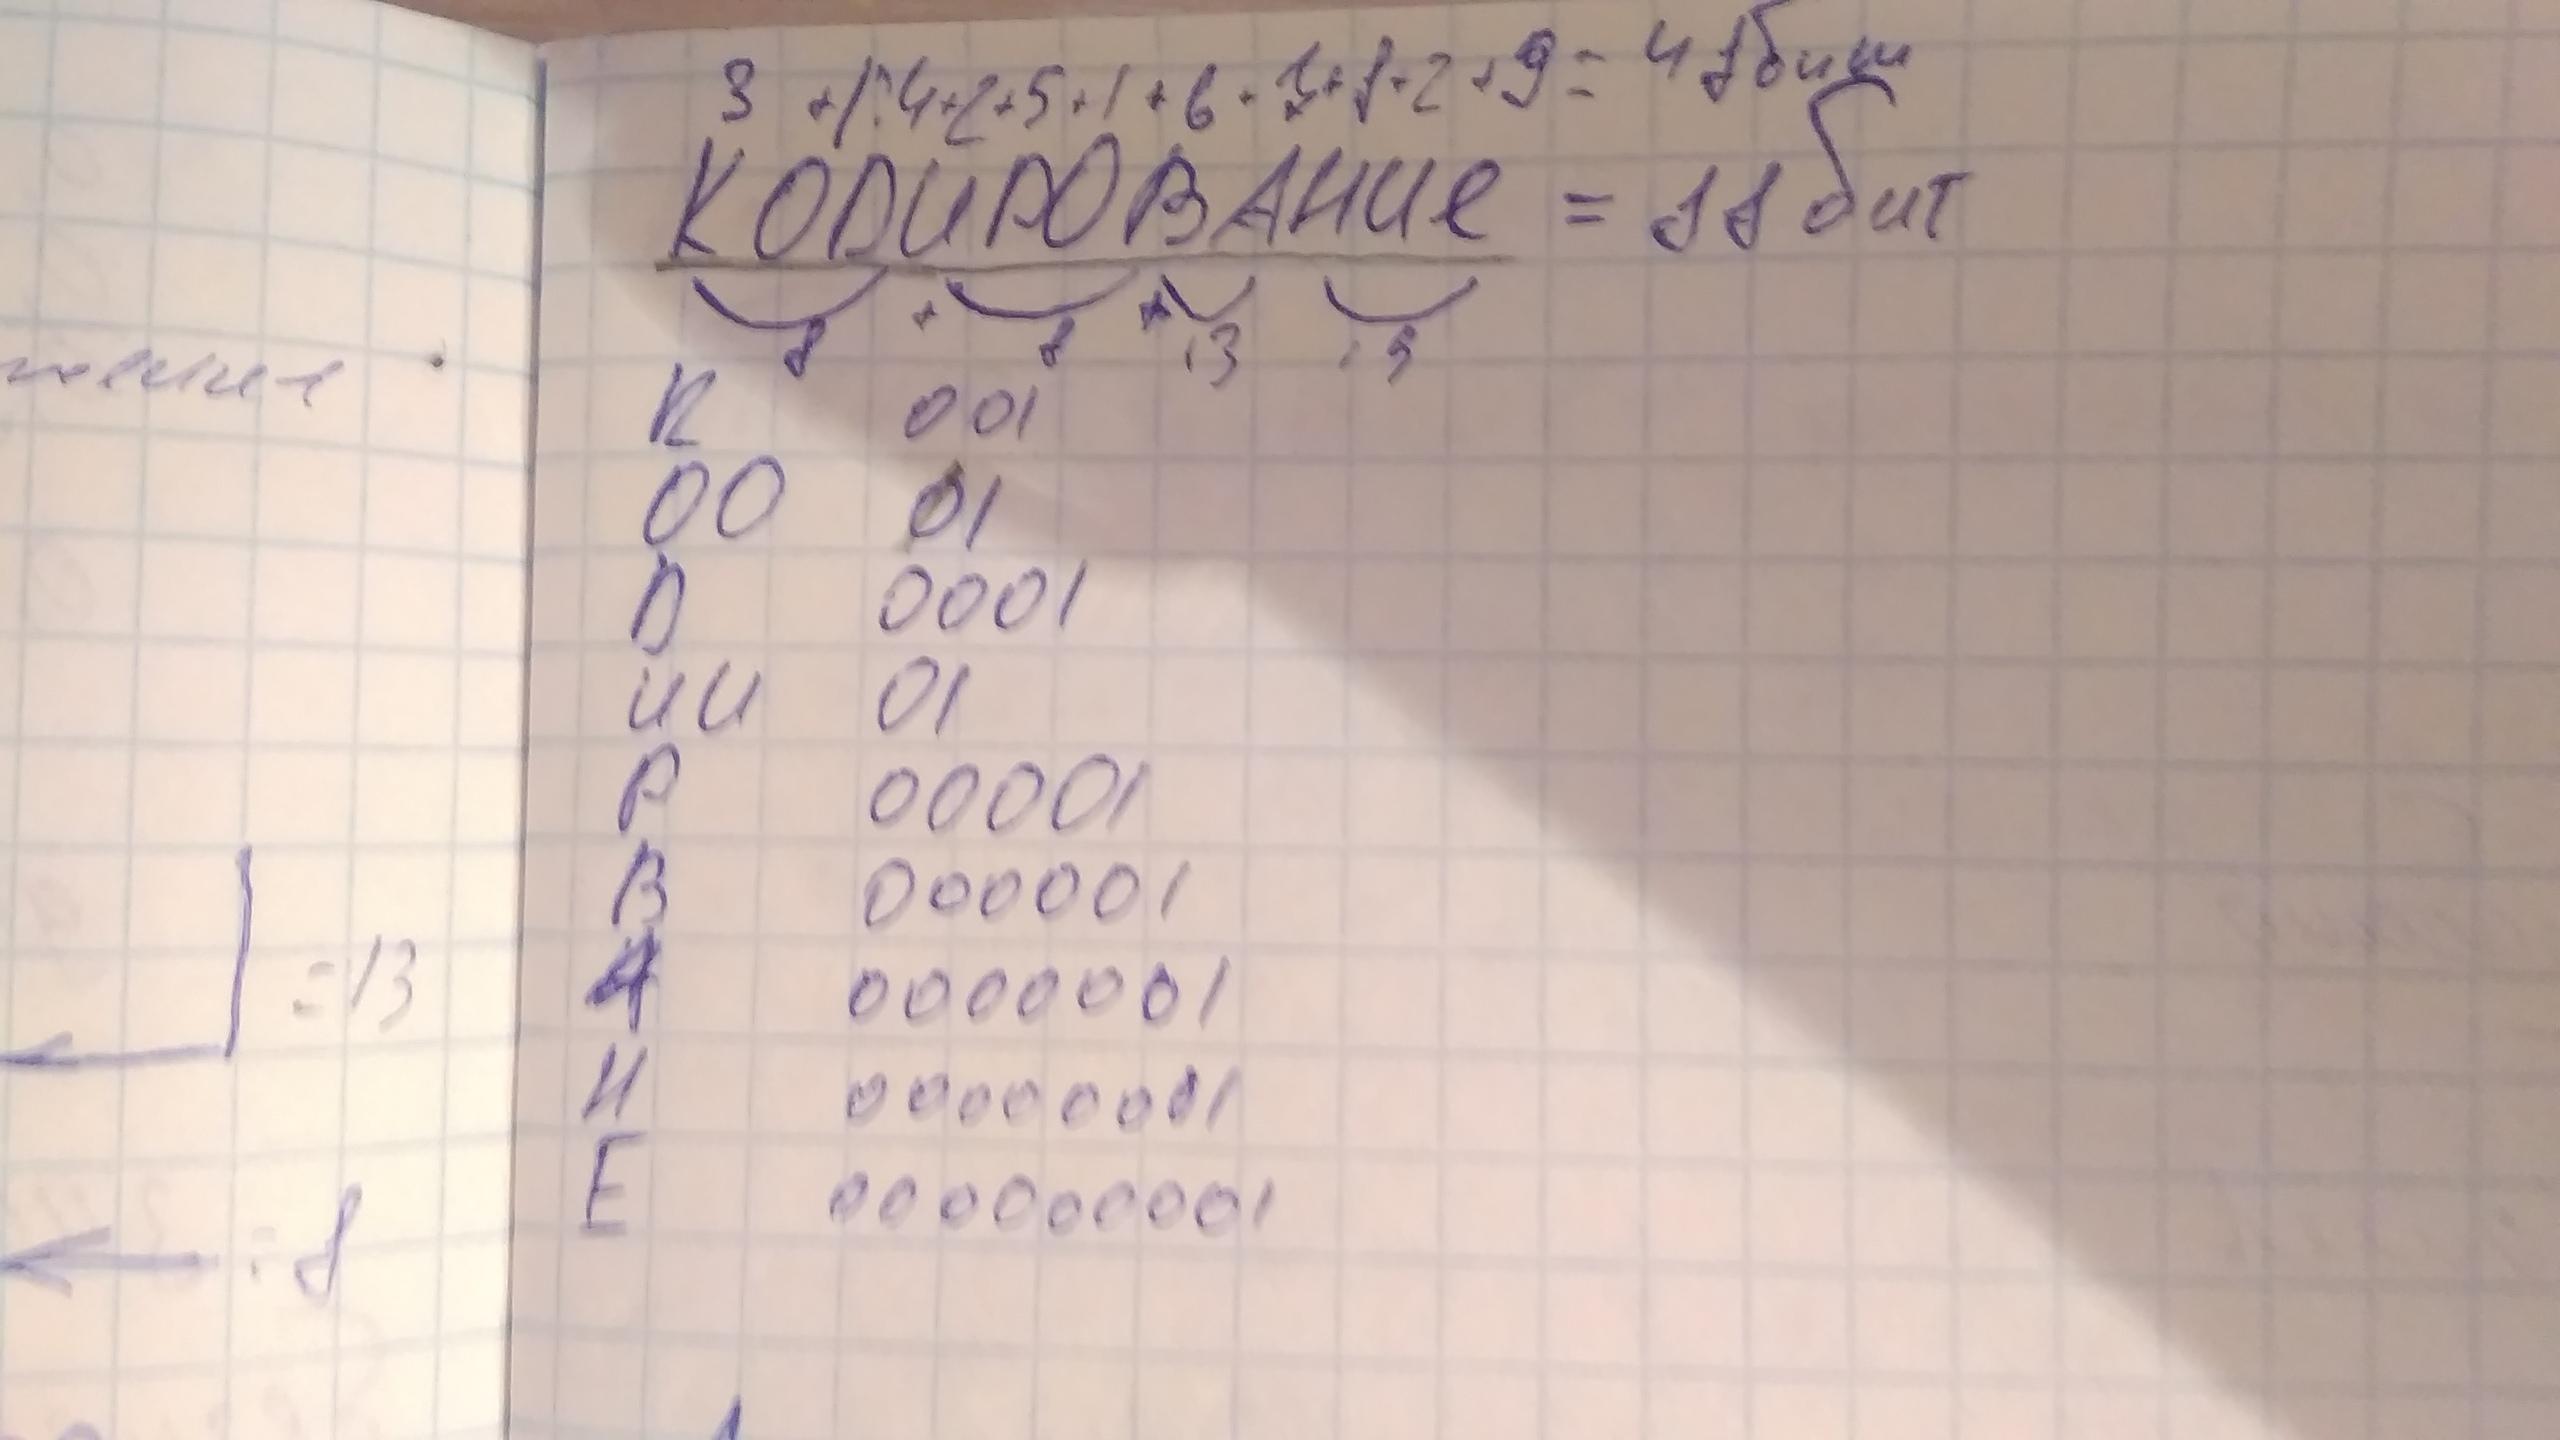 3 +1+4+2+5+1+6+7+8+2+9= 48бит
КОДИРОВАНИЕ = 88бит
8 + 8 + 13
К 001
ОО 01
D 0001
ИИ 01
Р 00001
В 000001
А 0000001
Н 00000001
Е 000000001
=13
=8